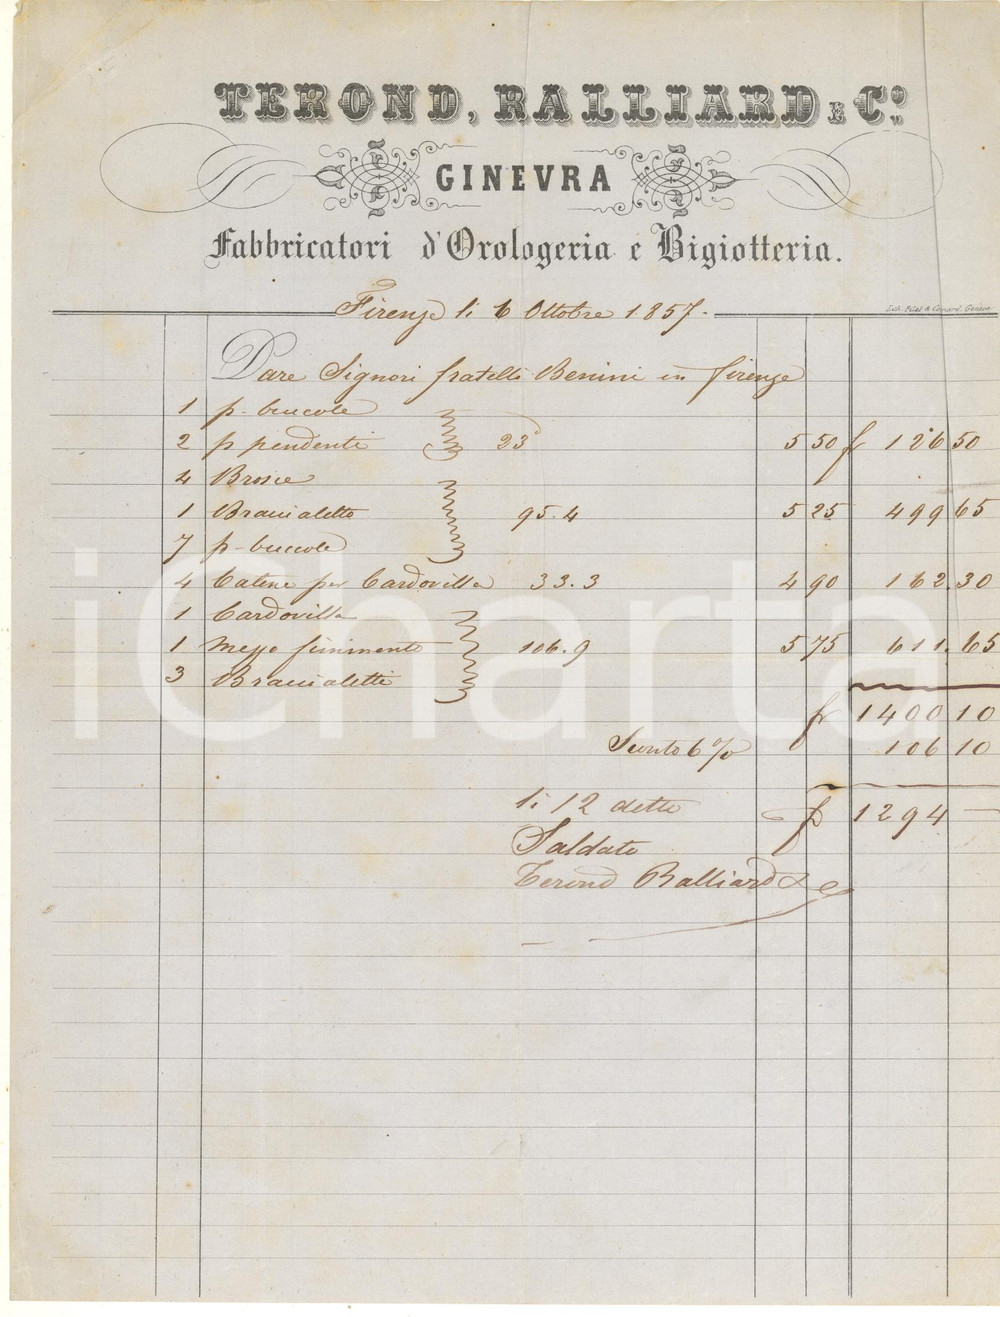 TEROND, RALLIARD E C.º
GINEVRA
Fabbricatori d'Orologeria e Bigiotteria.
Lith. Pilet & Cougnard, Genève
Firenze li 6 Ottobre 1857.
Dare Signori fratelli Benini in Firenze
1 p. buccole
2 p pendenti 23 5 50 fr 126 50
4 Brosie
1 Braccialetto 95.4 5 25 499 65
7 p. buccole
4 Catene per Cardovilla 33.3 4 90 162.30
1 Cardovilla
1 mezzo finimento 106.9 5 75 611.65
3 Braccialetti
fr 1400 10
Sconto 6 % 106 10
li 12 detto fr 1294 —
Saldato
Terond Ralliard & C
iCharta